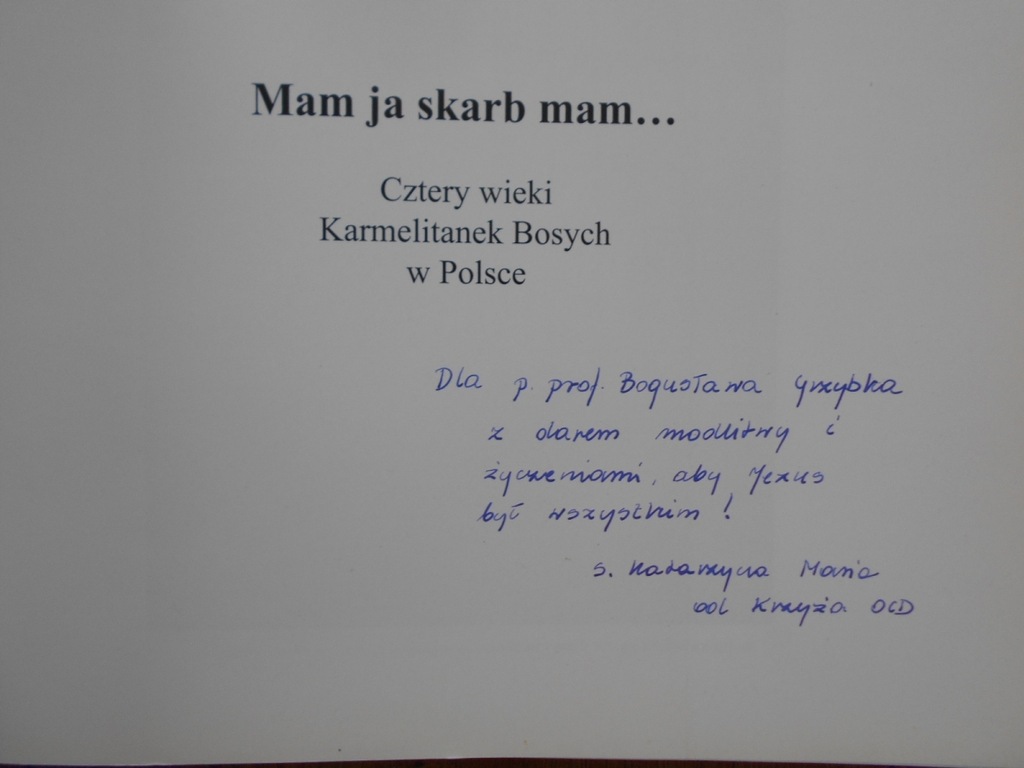 Mam ja skarb mam...
Cztery wieki
Karmelitanek Bosych
w Polsce
Dla p. prof. Bogusława Grzybka
z darem modlitwy i
życzeniami, aby Jezus
był wszystkim!
s. Katarzyna Maria
od Krzyża OCD